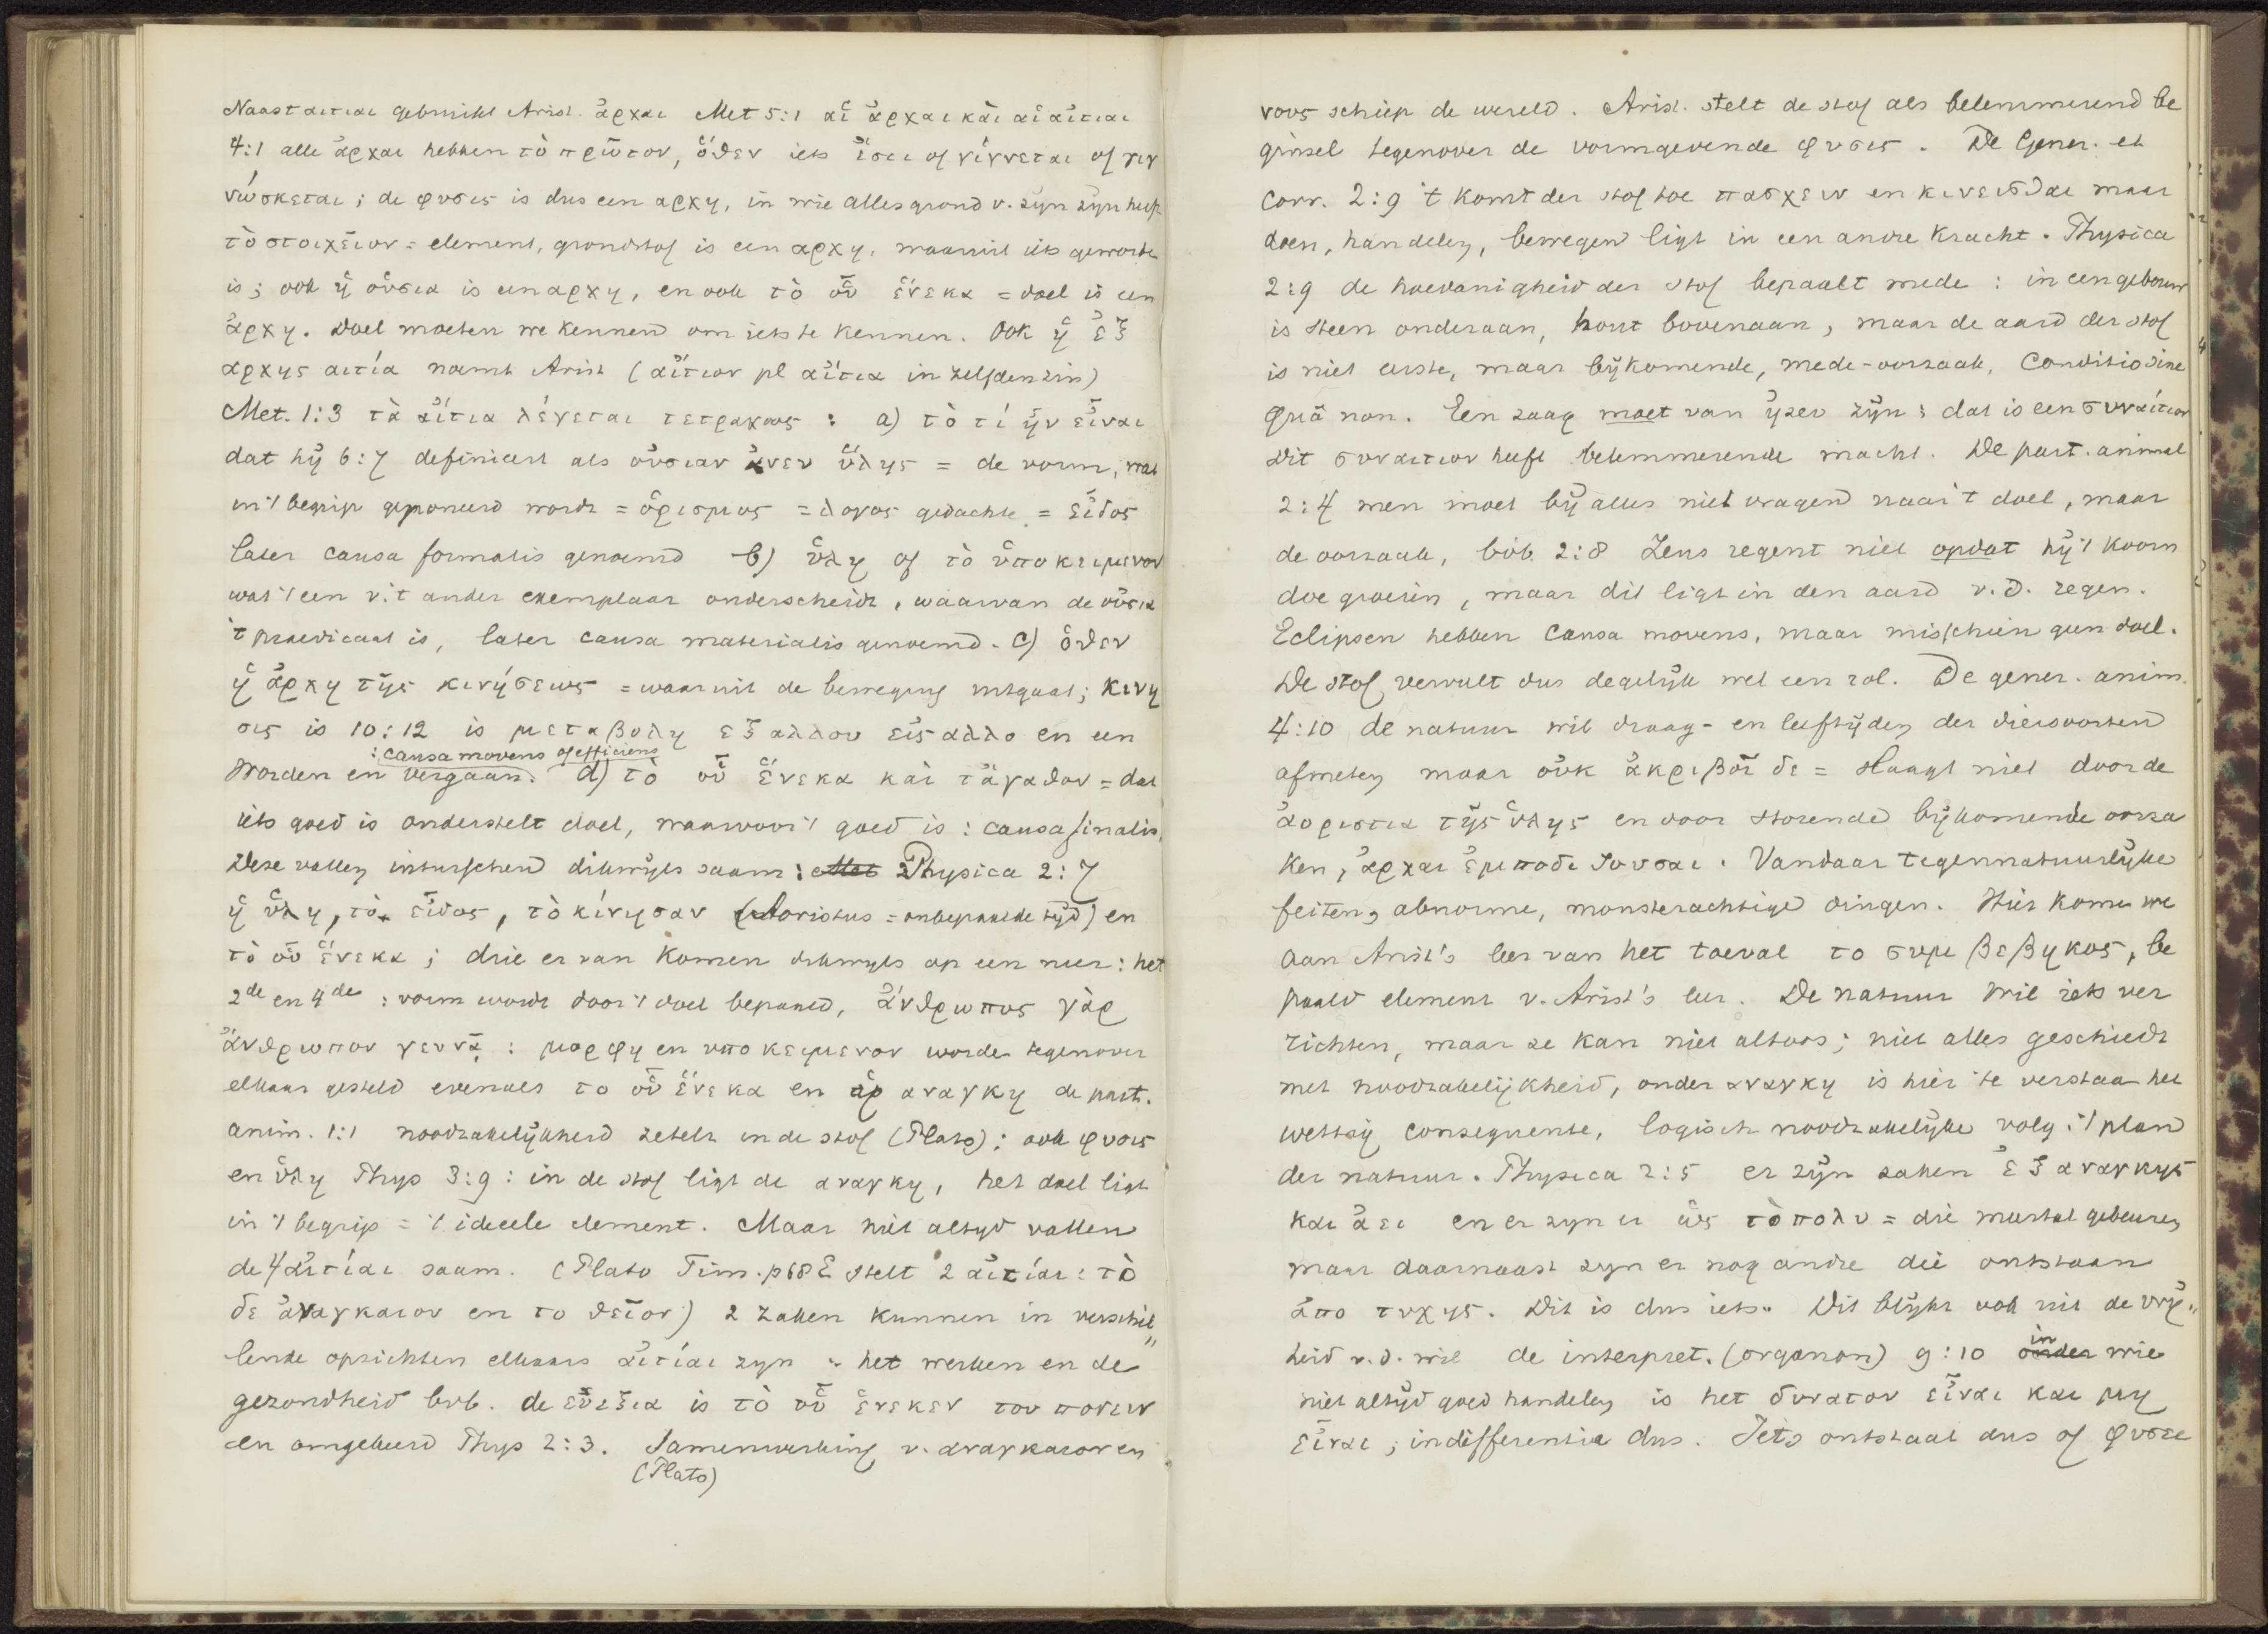 Naast αιτιαι gebruikt Arist. ἀρχαι Met 5:1 αἱ ἀρχαι καὶ αἱ αἰτιαι
4:1 alle ἀρχαι hebben τὸ πρῶτον, ὅθεν iets ἔστι of γίγνεται of γιγ
νώσκεται; de φυσις is dus een αρχη, in wie alles grond v. zyn zyn heeft
τὸ στοιχεῖον = element, grondstof is een αρχη, waaruit iets geworden
is; ook ἡ οὐσια is een αρχη, en ook τὸ οὗ ἕνεκα = doel is een
ἀρχη. Doel moeten we kennen om iets te kennen. Ook ἡ ἐξ
αρχης αιτία noemt Arist (αἴτιον pl αἴτια in zelfden zin)
Met. 1:3 τὰ αἴτια λέγεται τετραχως : a) τὸ τί ἦν εἶναι
dat hij 6:7 definieert als οὐσιαν ἄνευ ὕλης = de vorm, wat
in 't begrip geponeerd wordt = ὁρισμος = λογος gedachte = εἶδος
later causa formalis genoemd b) ὕλη of τὸ ὑποκειμενον
wat 't een v. 't ander exemplaar onderscheidt, waarvan de οὐσια
't praedicaat is, later causa materialis genoemd. c) ὅθεν
ἡ ἀρχη τῆς κινήσεως = waaruit de beweging uitgaat; κινη
σις is 10:12 is μεταβολη εξ αλλου εἰς αλλο en een
: causa movens of efficiens
Worden en vergaan. d) τὸ οὗ ἕνεκα καὶ τἀγαθον = dat
iets goed is onderstelt doel, waarvoor 't goed is : causa finalis.
Deze vallen intusschen dikwijls saam : Met 2 Physica 2:7
ἡ ὕλη, τὸ εἶδος, τὸ κίνησαν (Aoristus = onbepaalde tijd) en
τὸ οὗ ἕνεκα; drie er van komen dikwyls op een neer : het
2de en 4de : vorm wordt door 't doel bepaald, ἄνθρωπος γὰρ
ἄνθρωπον γεννᾷ : μορφη en υποκειμενον worden tegenover
elkaar gesteld evenals το οὗ ἕνεκα en αναγκη de part.
anim. 1:1 noodzakelijkheid zetelt in de stof (Plato) : ook φυσις
en ὕλη Phys 3:9 : in de stof ligt de αναγκη, het doel ligt
in 't begrip = 't ideele element. Maar niet altyd vallen
de 4 αἰτίαι saam. (Plato Tim. p 68 E stelt 2 αἰτίαι : τὸ
δε ἀναγκαιον en το θεῖον) 2 zaken kunnen in verschil"
lende opzichten elkaars αἰτίαι zyn : het werken en de
gezondheid bvb. de εὐεξια is τὸ οὗ ἕνεκεν του πονειν
en omgekeerd Phys 2:3. Samenwerking v. αναγκαιον en
(Plato)
νους schiep de wereld. Arist. stelt de stof als belemmerend be
ginsel tegenover de vormgevende φυσις. De Gener. et
Corr. 2:9 't komt der stof toe πασχειν en κινεισθαι maar
doen, handelen, bewegen ligt in een andre kracht. Physica
2:9 de hoedanigheid der stof bepaalt mede : in een gebouw
is steen onderaan, hout bovenaan, maar de aard der stof
is niet eerste, maar bijkomende, mede-oorzaak, Conditio sine
quâ non. Een zaag moet van ijzer zijn : dat is een συναίτιον
Dit συναιτιον heeft belemmerende macht. De part. animal
2:4 men moet bij alles niet vragen naar 't doel, maar
de oorzaak, bvb. 2:8 Zeus regent niet opdat hij 't koorn
doe groeien, maar dit ligt in den aard v. d. regen.
Eclipsen hebben causa movens, maar misschien geen doel.
De stof vervult dus degelijk wel een rol. De gener. anim.
4:10 de natuur wil draag- en leeftijden der diersoorten
afmeten maar οὐκ ἀκριβοῖ δε = slaagt niet door de
ἀοριστια τῆς ὕλης en door storende bijkomende oorza
ken, ἀρχαι ἐμποδιζουσαι. Vandaar tegennatuurlijke
feiten, abnorme, monsterachtige dingen. Hier komen we
aan Arist's leer van het toeval το συμβεβηκος, be
paald element v. Arist's leer. De natuur wil iets ver
richten, maar ze kan niet altoos; niet alles geschiedt
met noodzakelijkheid, onder αναγκη is hier te verstaan het
wettig consequente, logisch noodzakelijke volg. 't plan
der natuur. Physica 2:5 er zijn zaken ἐξ αναγκης
και ἀει en er zyn er ὡς τὸ πολυ = die meestal gebeuren,
maar daarnaast zyn er nog andre die ontstaan
ἀπο τυχης. Dit is dus iets. Dit blijkt ook uit de vrij"
heid v. d. wil de interpret. (organon) 9:10 onder in wie
niet altijd goed handelen is het δυνατον εἶναι και μη
εἶναι; indifferentia dus. Iets ontstaat dus of φυσει